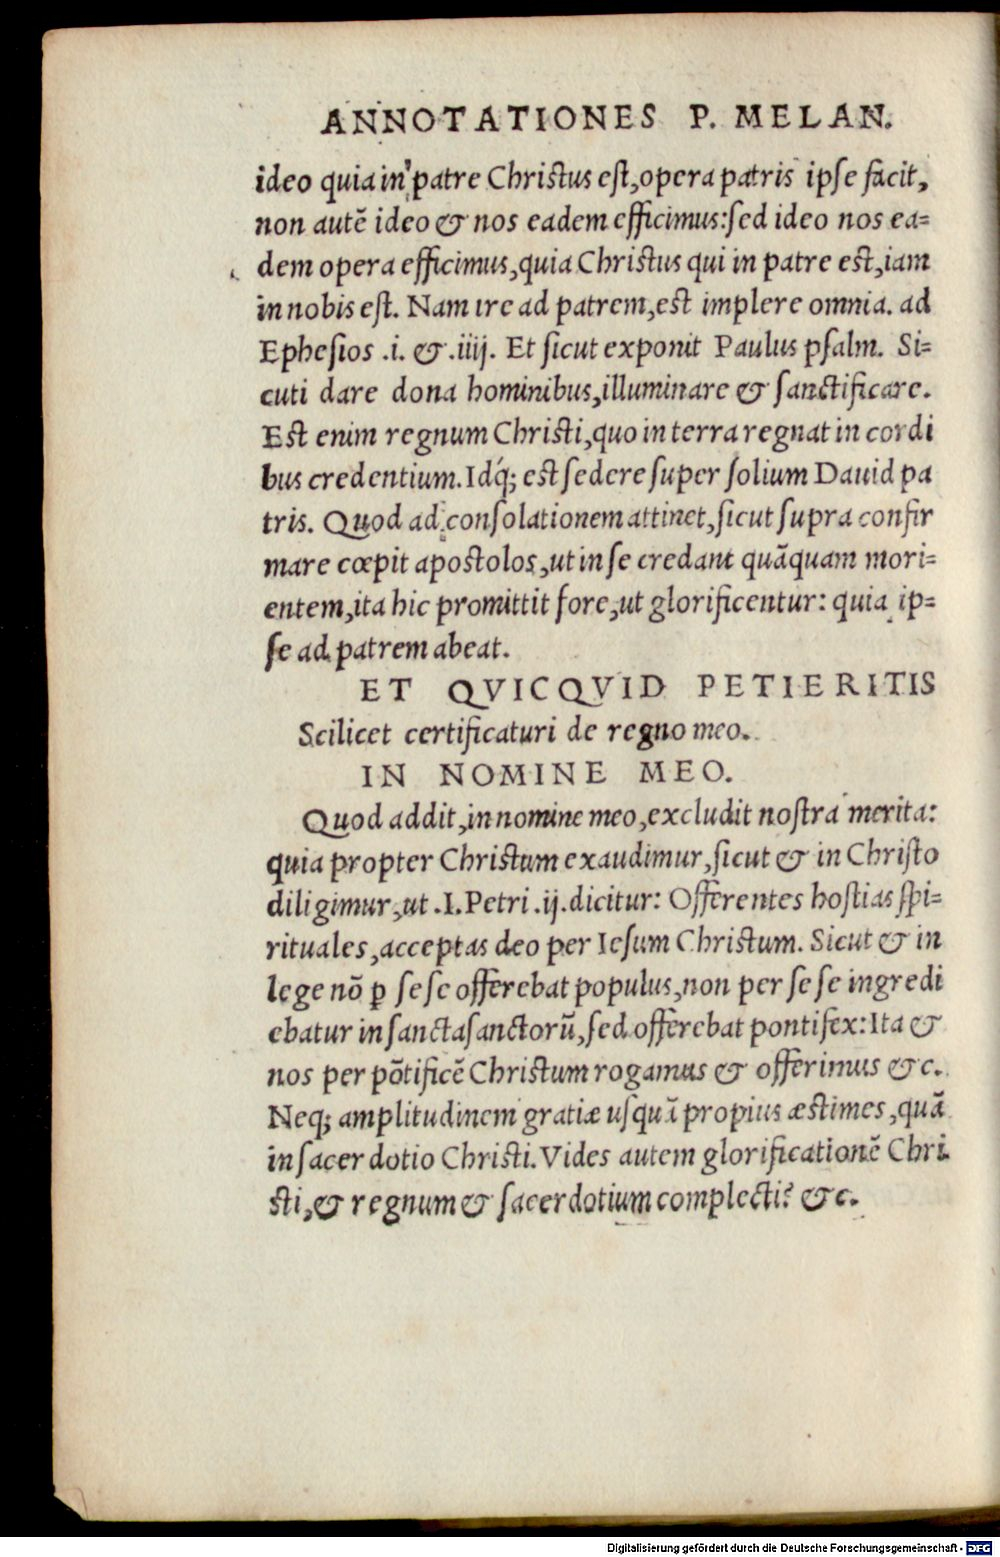 ANNOTATIONES P. MELAN.
ideo quia in patre Christus est, opera patris ipse facit,
non autē ideo & nos eadem efficimus: sed ideo nos ea=
dem opera efficimus, quia Christus qui in patre est, iam
in nobis est. Nam ire ad patrem, est implere omnia. ad
Ephesios .i. & .iiij. Et sicut exponit Paulus psalm. Si=
cuti dare dona hominibus, illuminare & sanctificare.
Est enim regnum Christi, quo in terra regnat in cordi
bus credentium. Idq́; est sedere super solium Dauid pa
tris. Quod ad consolationem attinet, sicut supra confir
mare cœpit apostolos, ut in se credant quāquam mori=
entem, ita hic promittit fore, ut glorificentur: quia ip=
se ad patrem abeat.
ET QVICQVID PETIERITIS
Scilicet certificaturi de regno meo.
IN NOMINE MEO.
Quod addit, in nomine meo, excludit nostra merita:
quia propter Christum exaudimur, sicut & in Christo
diligimur, ut .I. Petri .ij. dicitur: Offerentes hostias spi=
rituales, acceptas deo per Iesum Christum. Sicut & in
lege nō ꝑ sese offerebat populus, non per se se ingredi
ebatur in sancta sanctorū, sed offerebat pontifex: Ita &
nos per pōtificē Christum rogamus & offerimus &c.
Neq; amplitudinem gratiæ usquā propius æstimes, quā
in sacerdotio Christi. Vides autem glorificationē Chri
sti, & regnum & sacerdotium complecti? &c.
Digitalisierung gefördert durch die Deutsche Forschungsgemeinschaft - DFG